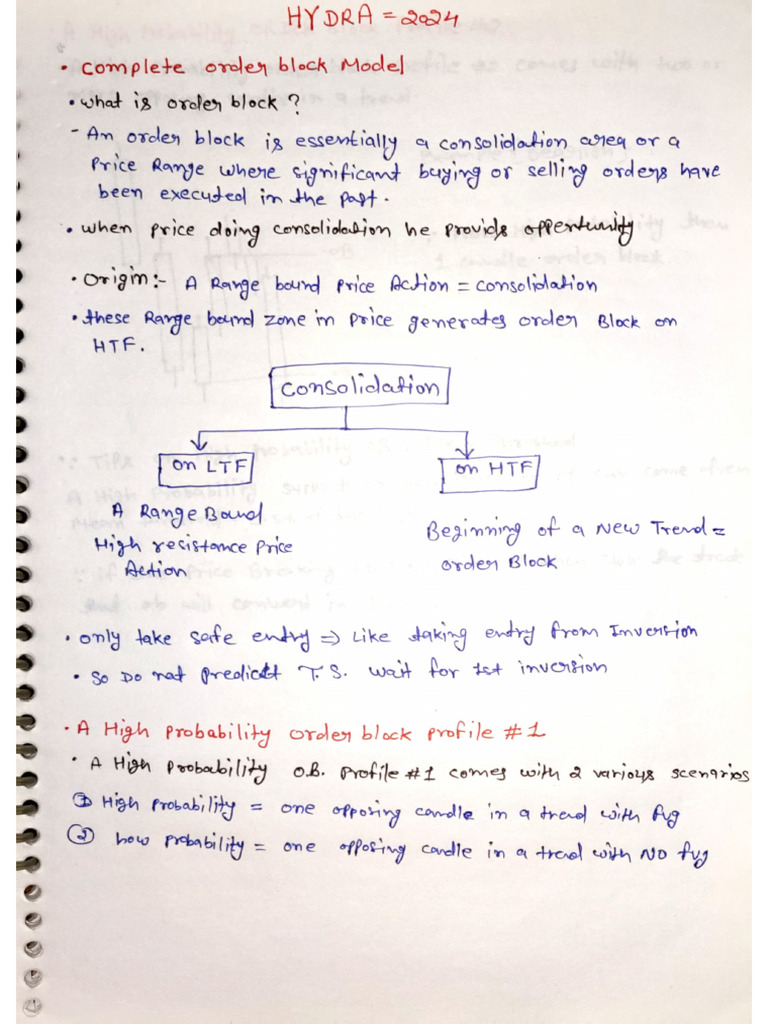 HYDRA = 2024
• Complete order block Model
• what is order block ?
- An order block is essentially a consolidation area or a
Price Range where significant buying or selling orders have
been executed in the past.
• when price doing consolidation he provids oppertunity
• Origin:- A Range bound Price Action = consolidation
• these Range bound zone in price generates order Block on
HTF.
Consolidation
on LTF
on HTF
A Range Bound
High resistance Price
Action
Beginning of a New Trend =
order Block
• only take safe entry ⇒ Like taking entry from Inversion
• so Do not Predict T.S. wait for 1st inversion
• A High probability order block profile #1
• A High Probability O.B. Profile #1 comes with 2 various scenarios
① High Probability = one opposing candle in a trend with fvg
② Low Probability = one opposing candle in a trend with NO fvg